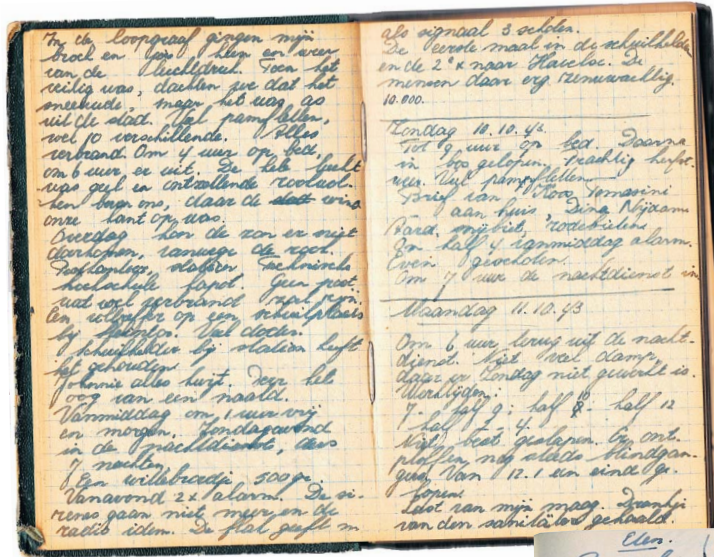 In de loopgraaf gingen mijn
broek en jas heen en weer
van de luchtdruk. Toen het
veilig was, dachten we dat het
sneeuwde, maar het was as
uit de stad. Vol pamfletten,
wel 10 verschillende. Alles
verbrand. Om 4 uur op bed,
om 6 uur er uit. De hele lucht
was geel en ontzettende rookwol-
ken boven ons, daar de stad wind
onze kant op was.
Overdag kon de zon er niet
doorkomen, vanwege de rook.
station Technische
hoogeschule kapot. Geen post,
wat wel verbrand zal zijn.
Een voltreffer op een schuilplaats
bij Vele doden.
Schuilkelder bij station heeft
het gehouden.
Johnnie alles kwijt. Door het
oog van een naald.
Vanmiddag om 1 uur vrij
en morgen. Zondagavond
in de nachtdienst, dus
7 nachten.
Een wittebroodje 500 gr.
Vanavond 2 x alarm. De si-
renes gaan niet meer en de
radio idem. De flak geeft nu
als signaal 3 schoten.
De eerste maal in de schuilkelder
en de 2e x naar Havelse. De
mensen daar erg zenuwachtig.
10.000.
Zondag 10.10.43.
Tot 9 uur op bed. Daarna
in bos gelopen. Prachtig herfst-
weer. Vol pamfletten.
Brief van Koos Tomasini
aan huis, Dina Nijdam.
Aard. snijbiet, rodebieten.
Om half 4 vanmiddag alarm.
Even geschoten.
Om 7 uur de nachtdienst in
Maandag 11.10.43
Om 6 uur terug uit de nacht-
dienst. Niet veel damp,
daar er Zondag niet gewerkt is.
Werktijden:
7 - half 9: half 12
half 4.
Niet best geslapen. Er ont-
ploffen nog steeds blindgan-
gers. Van 12.1 een eind ge-
lopen.
Last van mijn maag. Drankje
van den sanitäter gehaald.
Eten.